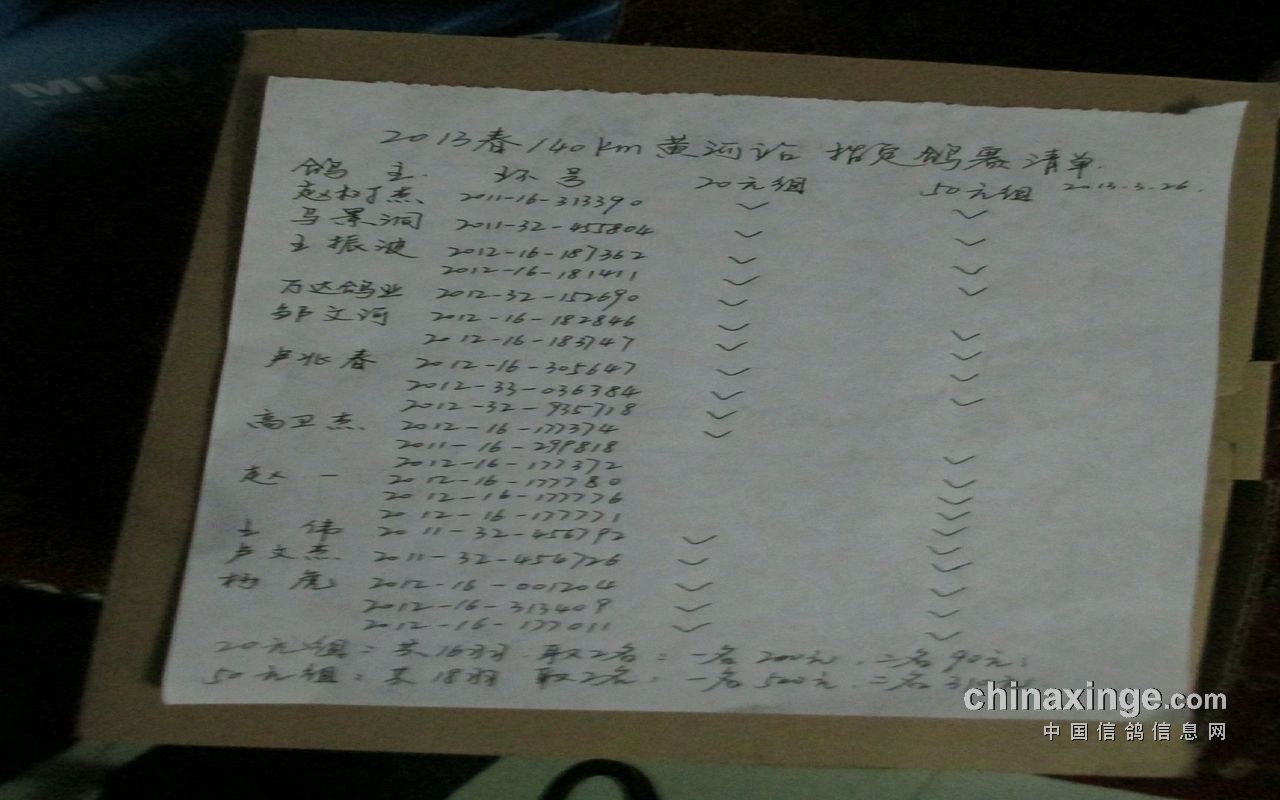 MIN
2013春140km黄河站 指定鸽赛清单.
鸽 主. 环号 20元组 50元组 2013.3.26.
赵树杰 2011-16-313390 ✓ ✓
马景润 2011-32-455804 ✓ ✓
王振波 2012-16-187362 ✓ ✓
2012-16-181411 ✓ ✓
万达鸽业 2012-32-152690 ✓
邹文河 2012-16-182846 ✓ ✓
2012-16-183747 ✓ ✓
卢兆春 2012-16-305647 ✓ ✓
2012-33-036384 ✓ ✓
2012-32-935718 ✓
高卫杰. 2012-16-177374 ✓
2011-16-299818
2012-16-177372 ✓
赵一 2012-16-177780 ✓
2012-16-177776 ✓
2012-16-177771 ✓
王伟 2011-32-456792 ✓ ✓
卢文杰. 2011-32-456726 ✓ ✓
杨虎 2012-16-001204 ✓ ✓
2012-16-313409 ✓ ✓
2012-16-177011 ✓ ✓
20元组: 共16羽. 取2名: 一名200元. 二名90元;
50元组: 共18羽 取2名: 一名500元. 二名
chinaxinge.com
中国信鸽信息网